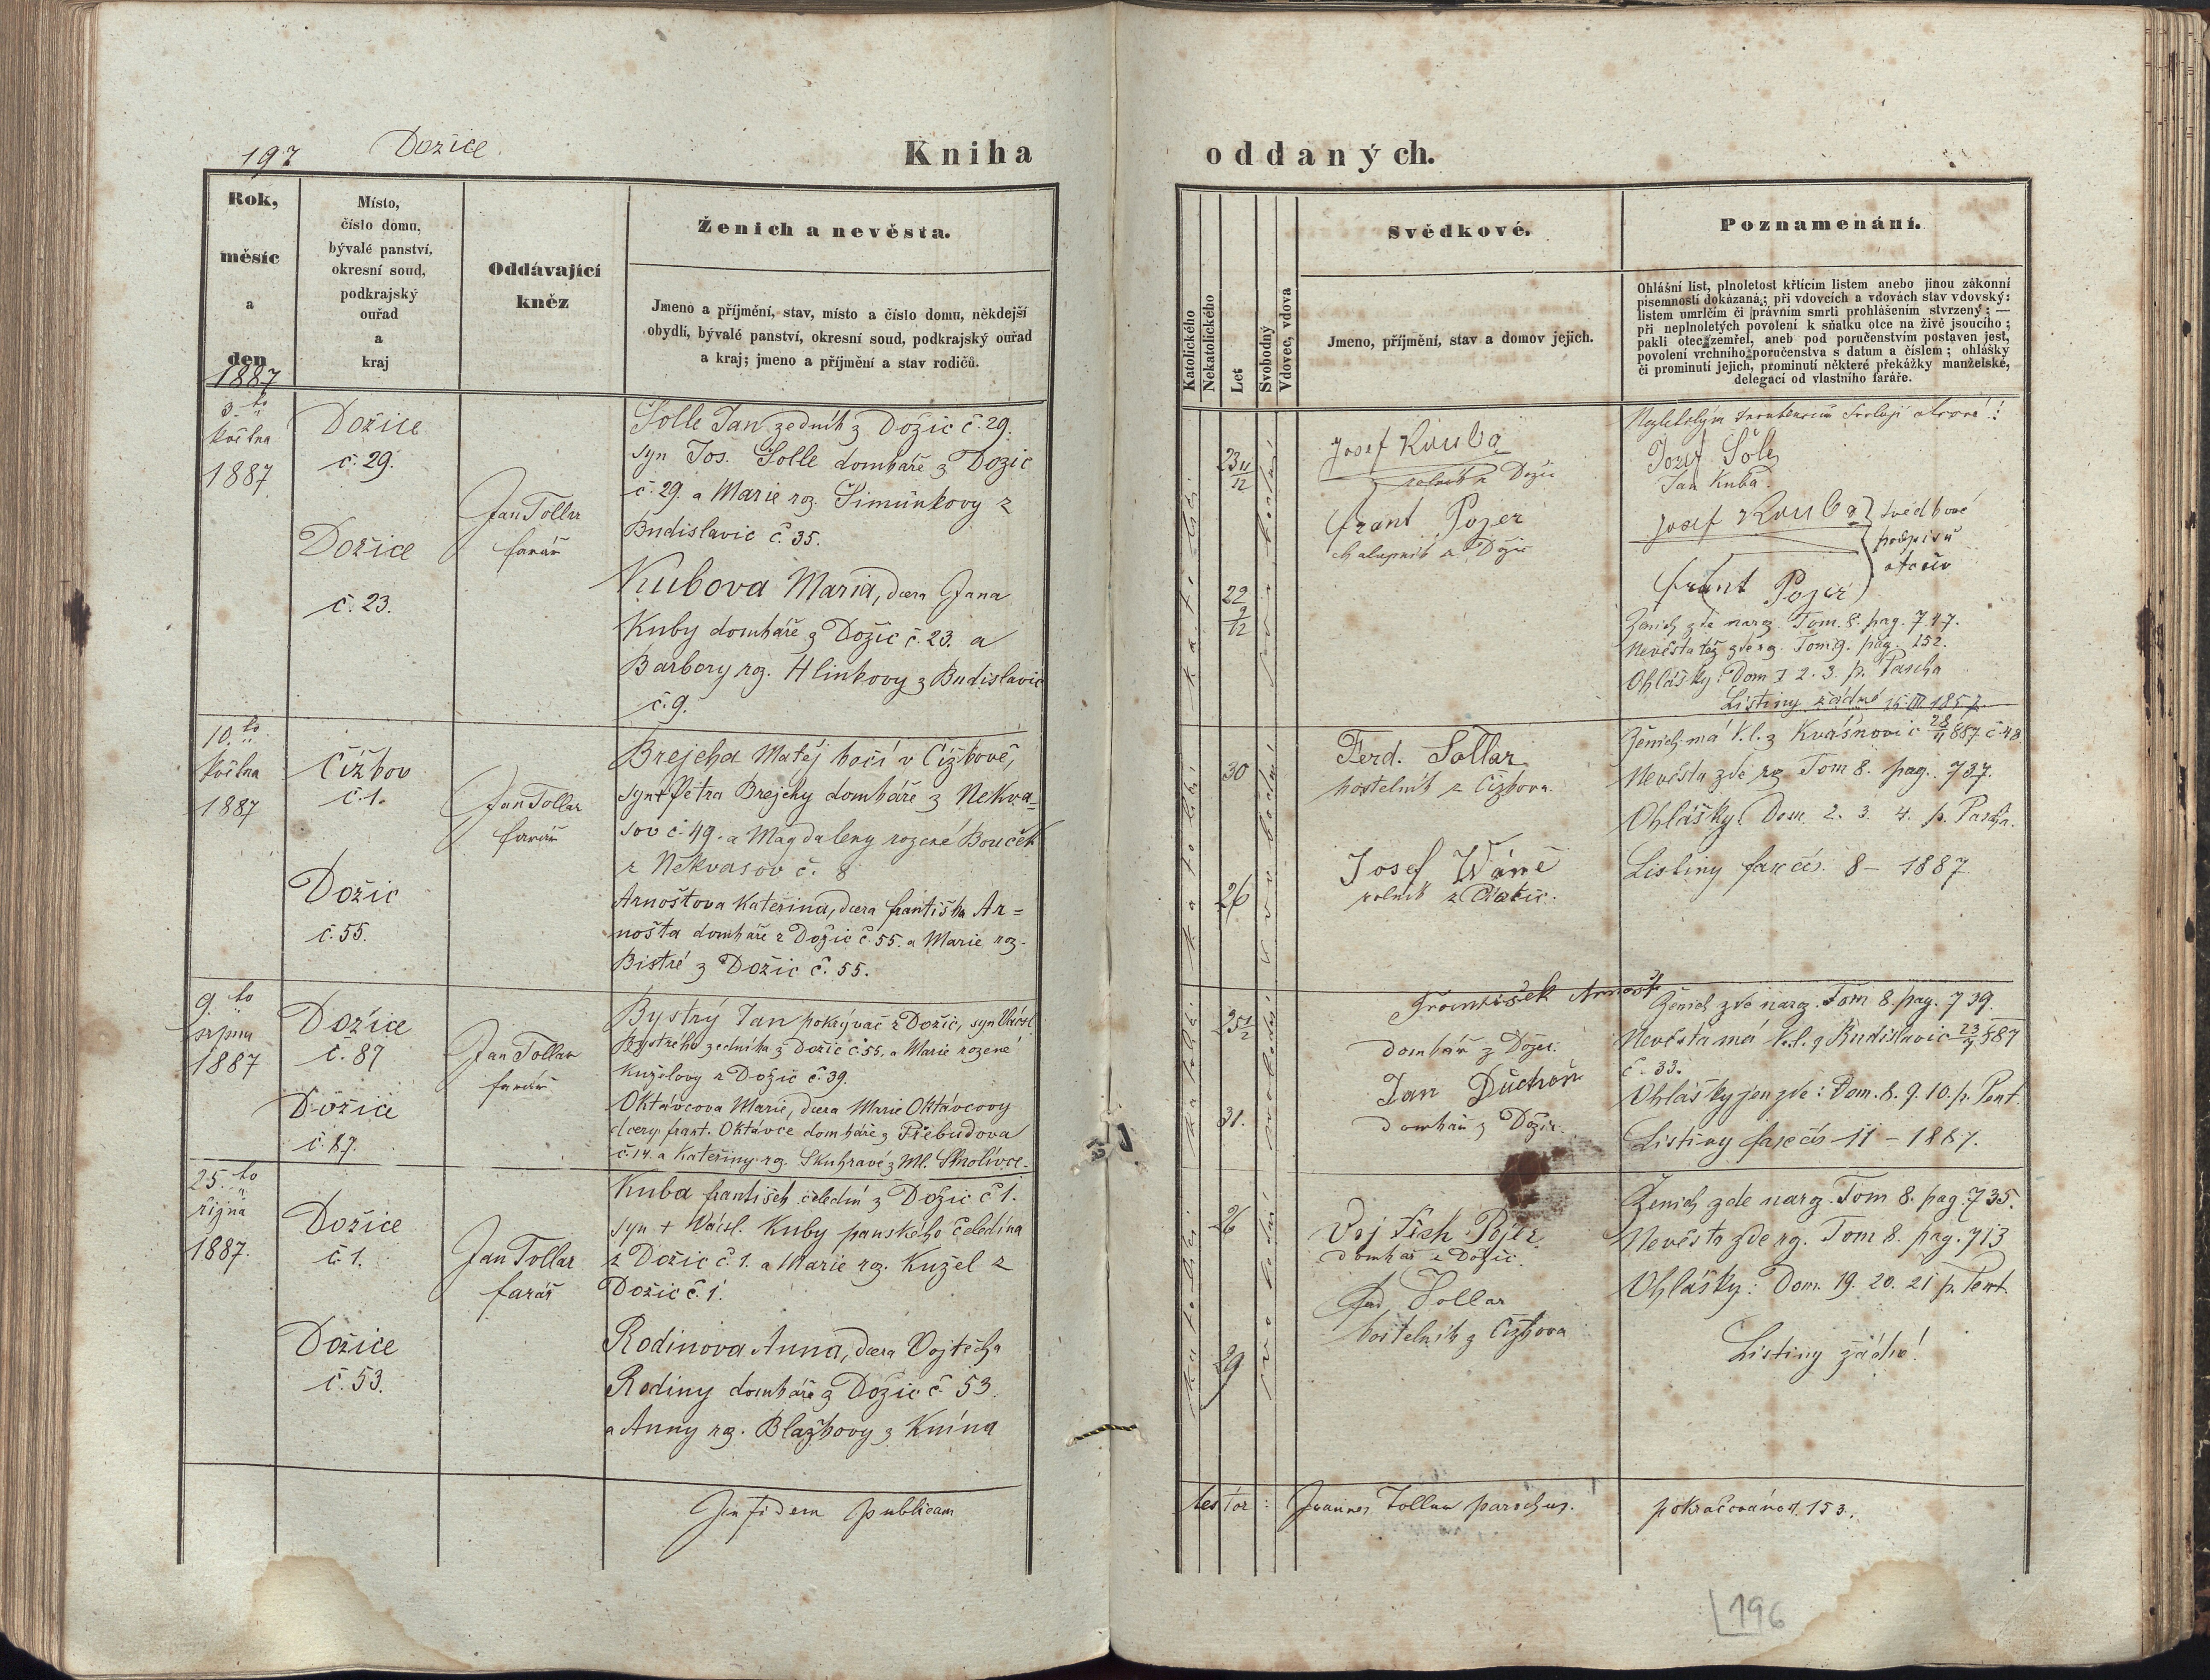 197
Dozice
Kniha
Rok,
měsíc
a
den
1887
Místo,
číslo domu,
bývalé panství,
okresní soud,
podkrajský
ouřad
a
kraj
Oddávající
kněz
Ženich a nevěsta.
Jmeno a příjmění, stav, místo a číslo domu, někdejší
obydlí, bývalé panství, okresní soud, podkrajský ouřad
a kraj; jmeno a příjmění a stav rodičů.
3. to
května
1887
Dožice
č. 29.
Dožice
č. 23.
Jan Tollar
farář
Solle Jan zedník z Dožic č. 29.
syn Jos. Solle domkáře z Dožic
č. 29. a Marie roz. Simůnkovy z
Budislavic č. 35.
Kubova Maria, dcera Jana
Kuby domkáře z Dožic č. 23. a
Barbory rz. Hlinkovy z Budislavic
č. 9.
10. to
května
1887
Čížkov
č. 1.
Dožic
č. 55.
Jan Tollar
farář
Brejcha Matěj kočí v Čížkově,
syn + Petra Brejchy domkáře z Nekva-
sov č. 49. a Magdaleny rozené Bouček
z Nekvasov č. 8
Arnoštova Kateřina, dcera františka Ar=
nošta domkáře z Dožic č. 55. a Marie roz.
Bistré z Dožic č. 55.
9. to
srpna
1887
Dožice
č. 87
Dožice
č. 87.
Jan Tollar
farář
Bystrý Jan pokrývač z Dožic, syn Václ.
Bystrého zedníka z Dožic č. 55, a Marie rozené
Kuželovy z Dožic č. 39.
Oktávcova Marie, dcera Marie Oktávcovy
dcery frant. Oktávce domkáře z Přebudova
č. 14. a Kateřiny rz. Skuhravé z Ml. Smolivce.
25. to
října
1887.
Dožice
č. 1.
Dožice
č. 53.
Jan Tollar
farář
Kuba františek čeledín z Dožic č 1.
syn + Václ. Kuby panského čeledína
z Dožic č. 1. a Marie rz. Kužel z
Dožic č. 1.
Rodinova Anna, dcera Vojtěcha
Rodiny domkáře z Dožic č. 53.
a Anny rz. Blažkovy z Knína
In fidem publicam
oddaných.
Katolického
Nekatolického
Let
Svobodný
Vdovec, vdova
Svědkové.
Jmeno, příjmění, stav a domov jejich.
Poznamenání.
Ohlášní list, plnoletost křtícím listem anebo jinou zákonní
písemností dokázaná; při vdovcích a vdovách stav vdovský:
listem umrlčím či právním smrti prohlášením stvrzený; —
při neplnoletých povolení k sňatku otce na živě jsoucího;
pakli otec zemřel, aneb pod poručenstvím postaven jest,
povolení vrchního poručenstva s datum a číslem; ohlášky
či prominutí jejich, prominutí některé překážky manželské,
delegací od vlastního faráře.
katolické
23 11/12
22 9/12
svobodní
Josef Kouba
rolník z Dožic
frant Pojer
chalupník z Dožic
Jozef Šole
Jan Kuba.
Josef Kouba } svědkové
podpisů
otcův
frant Pojer
Ženich zde naroz. Tom. 8. pag. 747.
Nevěsta též zde rz. Tom. 9. pag. 152.
Ohlášky: Dom I 2. 3. p. Pascha
Listiny žádné
katolické
30
26
svobodní
Ferd. Sollar
kostelník z Čížkova.
Josef Wáně
rolník z
Ženich má k. l. z Kvášňovic 28/4 887 č 48
Nevěsta zde rz Tom 8. pag. 737.
Ohlášky: Dom. 2. 3. 4. p. Pascha.
Listiny fasc čís. 8 – 1887
katolické
25 1/2
31.
svobodní
František Arnošt
domkář z Dožic.
Jan Duchoň
domkář z Dožic.
Ženich zde naroz. Tom 8. pag. 739.
Nevěsta má k. l. z Budislavic 23/7 887
č. 33.
Ohlášky jen zde: Dom. 8. 9. 10. p. Pent.
Listiny fasc čís 11 – 1887.
katolické
26
29
svobodní
Vojtěch Pojer
domkář z Dožic.
Ferd. Sollar
kostelník z Čížkova
Ženich zde naroz. Tom 8. pag. 735.
Nevěsta zde rz. Tom 8. pag. 713
Ohlášky: Dom. 19. 20. 21 p. Pent.
Listiny žádné!
testor: Joannes Tollar parochus.
pokračování od. 153.
196